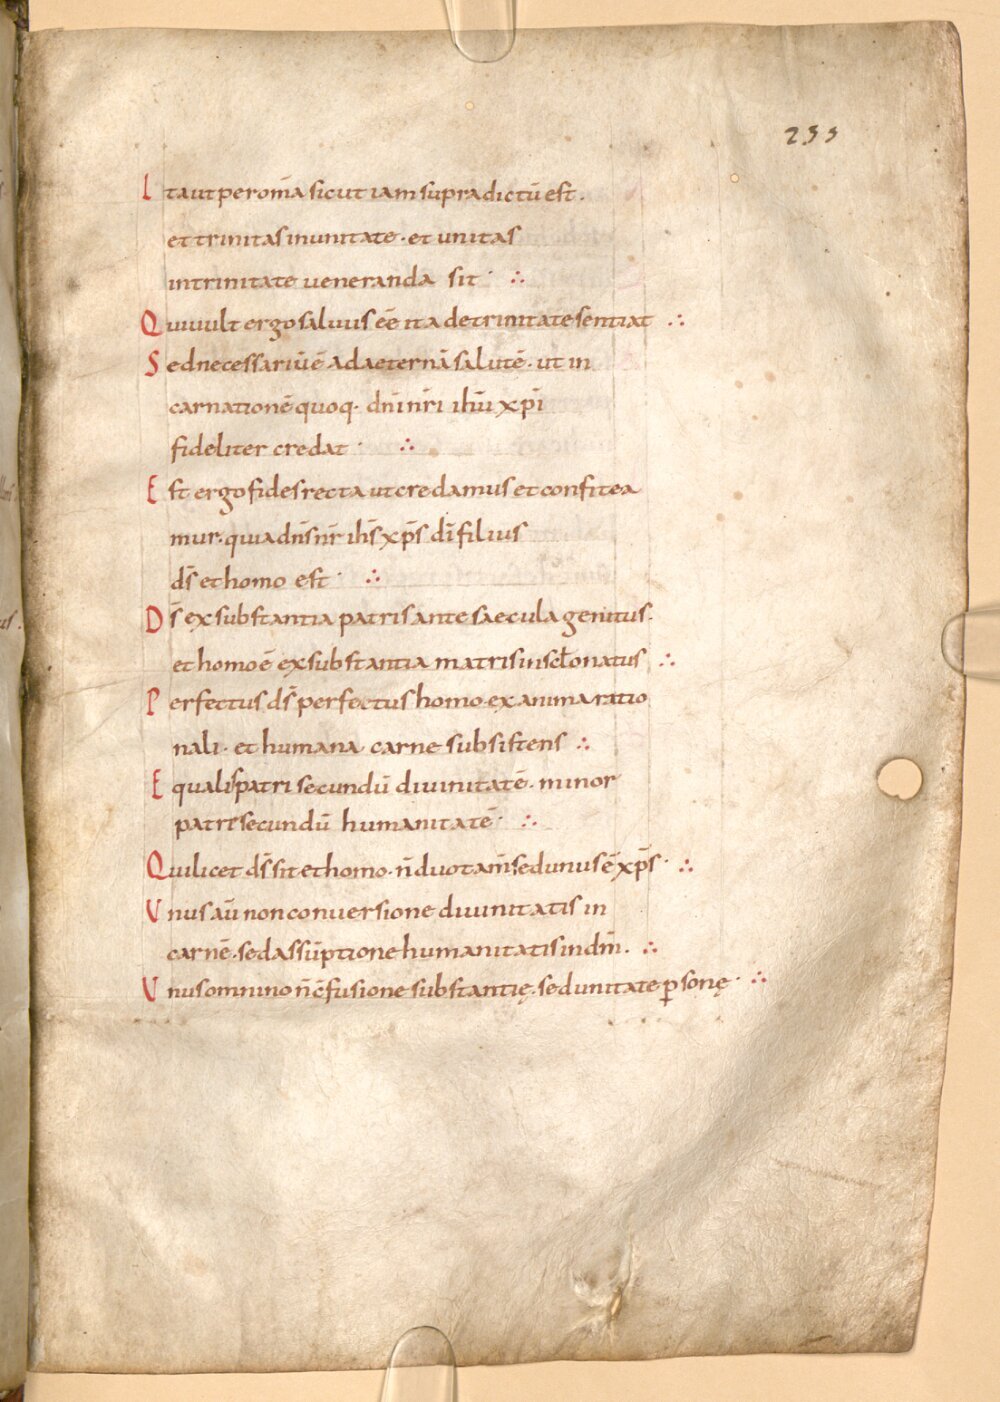 233
Ita ut per om̄a sicut iam supra dictū est.
et trinitas in unitate · et unitas
in trinitate ueneranda sit · ∴
Qui uult ergo saluus eē ita de trinitate sentiat ∴
Sed necessariū ē ad aeternā salutē · ut in
carnationē quoq· dn̄i nr̄i ihū xp̄i
fideliter credat · ∴
Est ergo fides recta ut credamus et confitea
mur · quia dn̄s nr̄ ih̄s xp̄s dī filius
ds̄ et homo est · ∴
Ds̄ ex substantia patris ante saecula genitus.
et homo ē ex substantia matris in sclo natus ∴
Perfectus ds̄ perfectus homo · ex anima ratio
nali · et humana carne subsistens ∴
Equalis patri secundū diuinitatē · minor
patre secundū humanitatē · ∴
Qui licet ds̄ sit et homo · n̄ duo tam̄ sed unus ē xp̄s · ∴
Unus aū non conuersione diuinitatis in
carnē · sed assūptione humanitatis in dm̄. ∴
Unus omnino n̄ c̄fusione substantię · sed unitate ꝑsonę · ∴